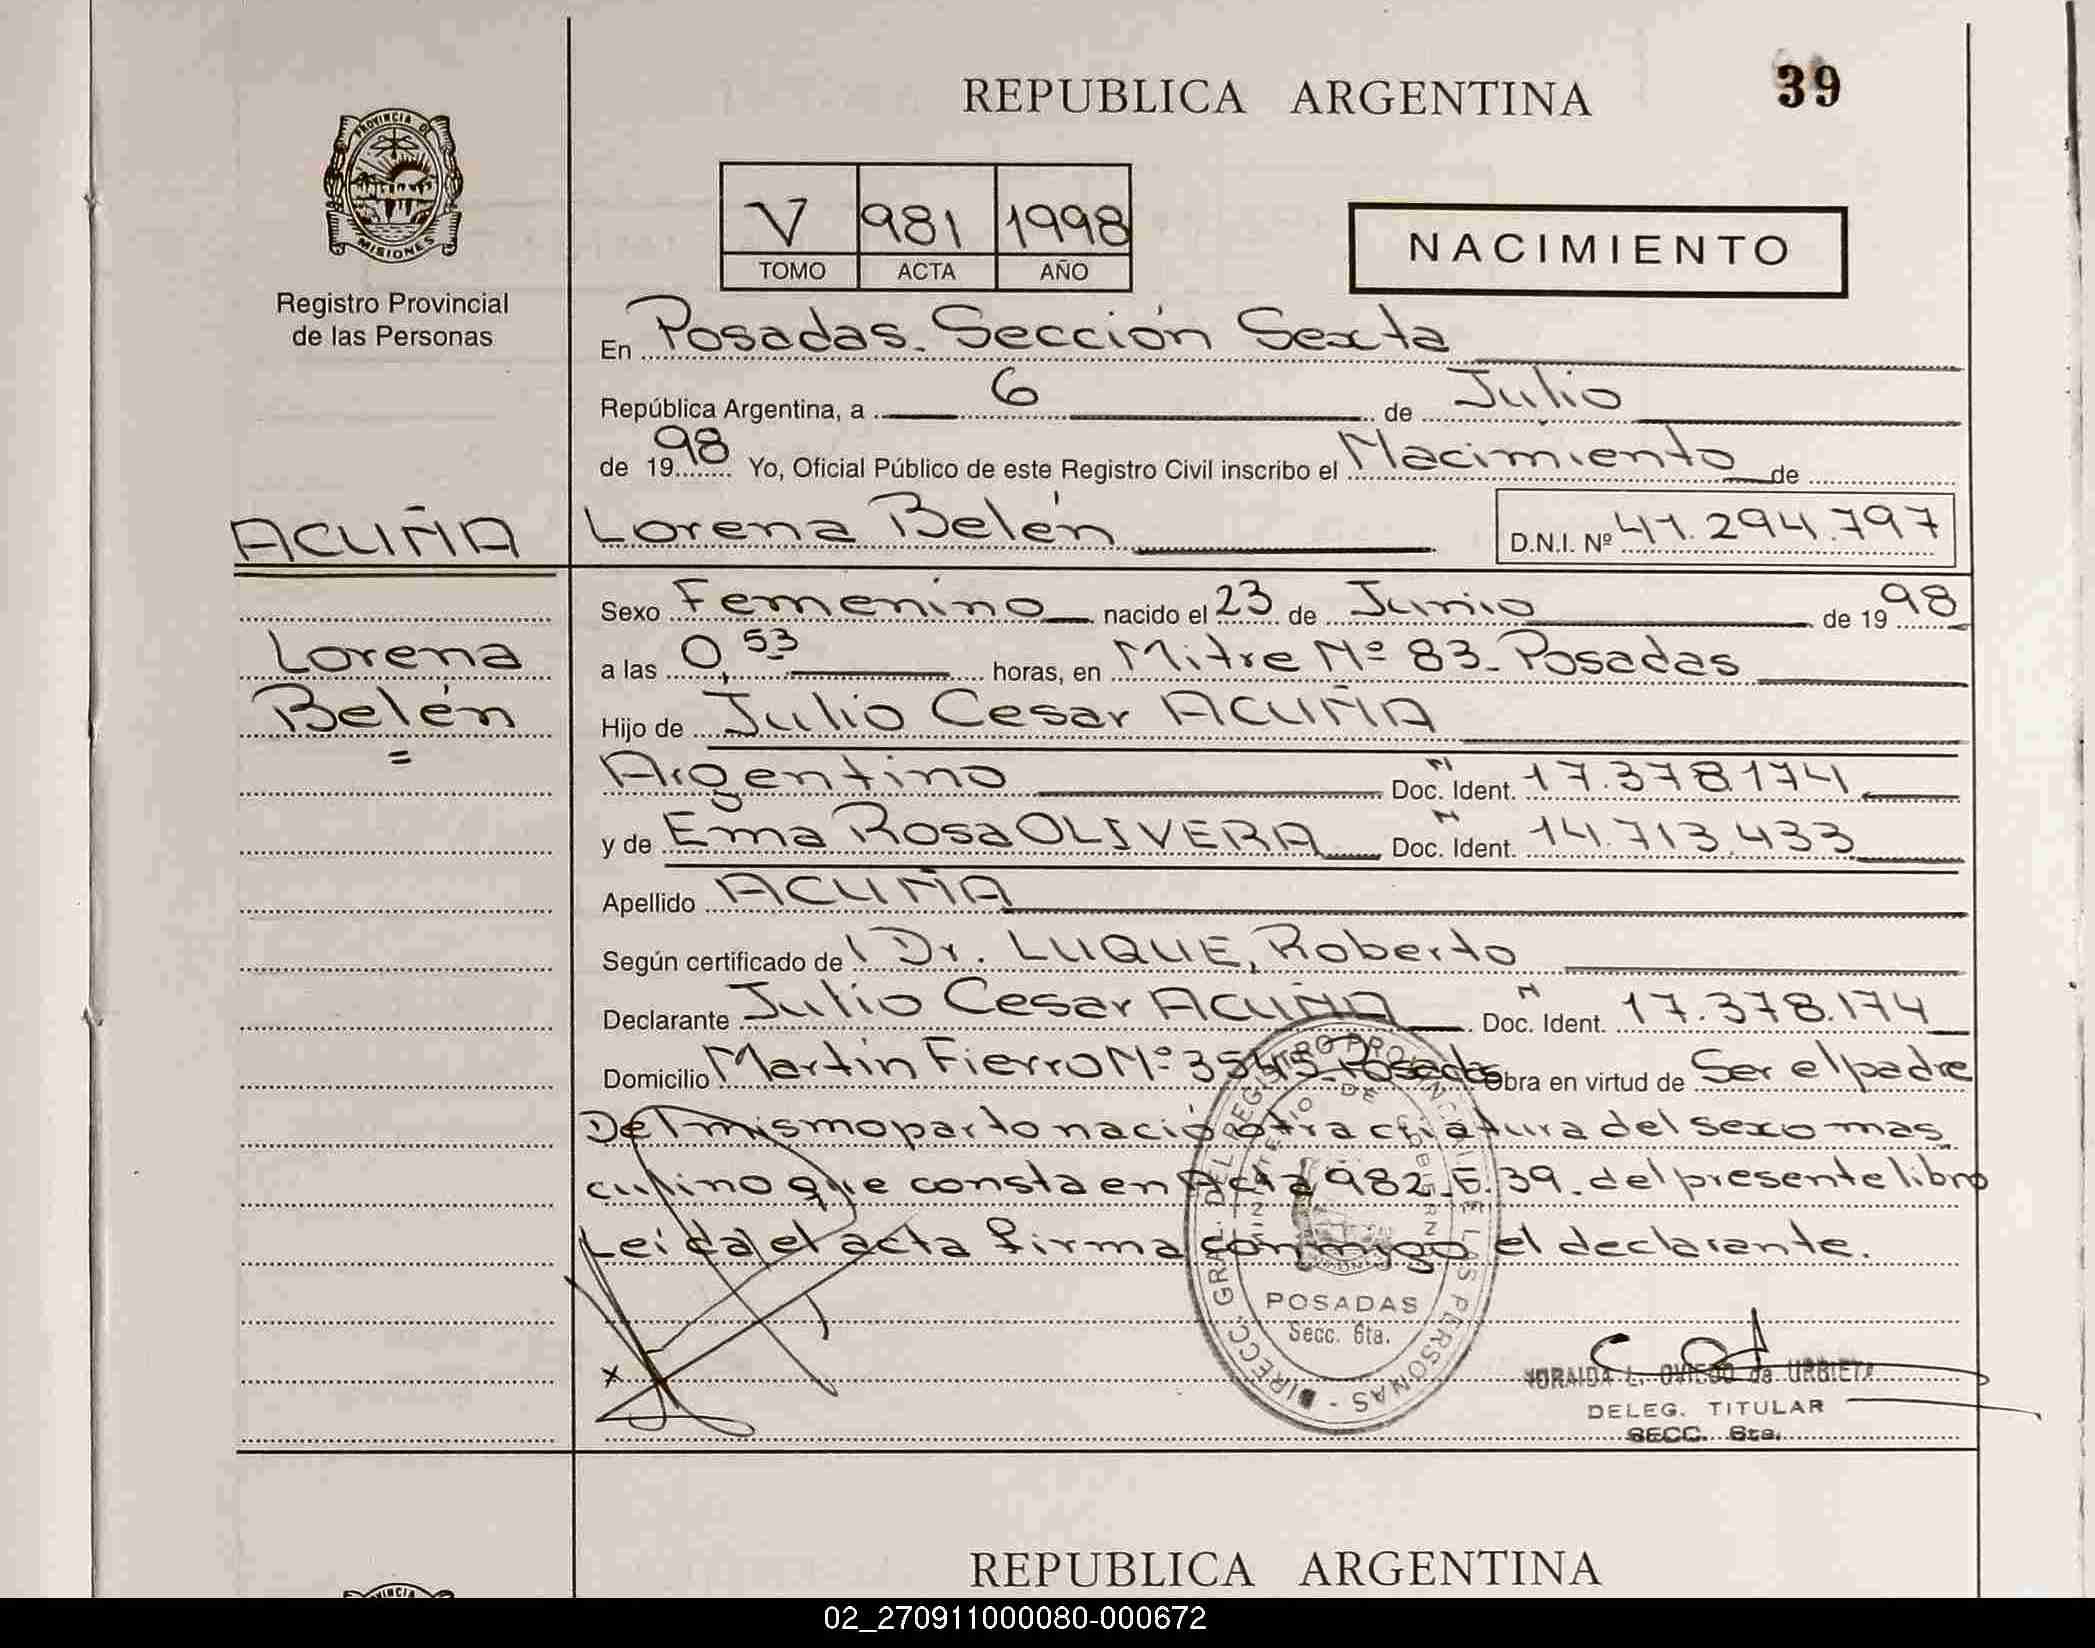 REPUBLICA ARGENTINA
39
PROVINCIA DE
MISIONES
Registro Provincial
de las Personas
V 981 1998
TOMO ACTA AÑO
NACIMIENTO
En Posadas. Sección Sexta
República Argentina, a 6 de Julio
de 1998 Yo, Oficial Público de este Registro Civil inscribo el Nacimiento de
ACUÑA Lorena Belén D.N.I. Nº 41.294.797
Sexo Femenino nacido el 23 de Junio de 1998
Lorena
a las 0,53 horas, en Mitre Nº 83_ Posadas
Belén
Hijo de Julio Cesar ACUÑA
=
Argentino Doc. Ident. 17.378174
y de Ema Rosa OLIVERA Doc. Ident. 14.713.433
Apellido ACUÑA
Según certificado de l Dr. LUQUE, Roberto
Declarante Julio Cesar ACUÑA Doc. Ident. 17.378.174
Domicilio Martín Fierro Nº 3545_ Posadas Obra en virtud de Ser el padre
Del mismo parto nació otra criatura del sexo mas
culino que consta en Acta 982_F.39. del presente libro
Leída el acta firma conmigo el declarante.
DIRECC. GRAL. DEL REGISTRO PROVINCIAL DE LAS PERSONAS
MINISTERIO DE GOBIERNO
MISIONES
POSADAS
Secc. 6ta.
x
L. OVIEDO de URBIETA
DELEG. TITULAR
SECC. 6ta.
REPUBLICA ARGENTINA
02_270911000080-000672